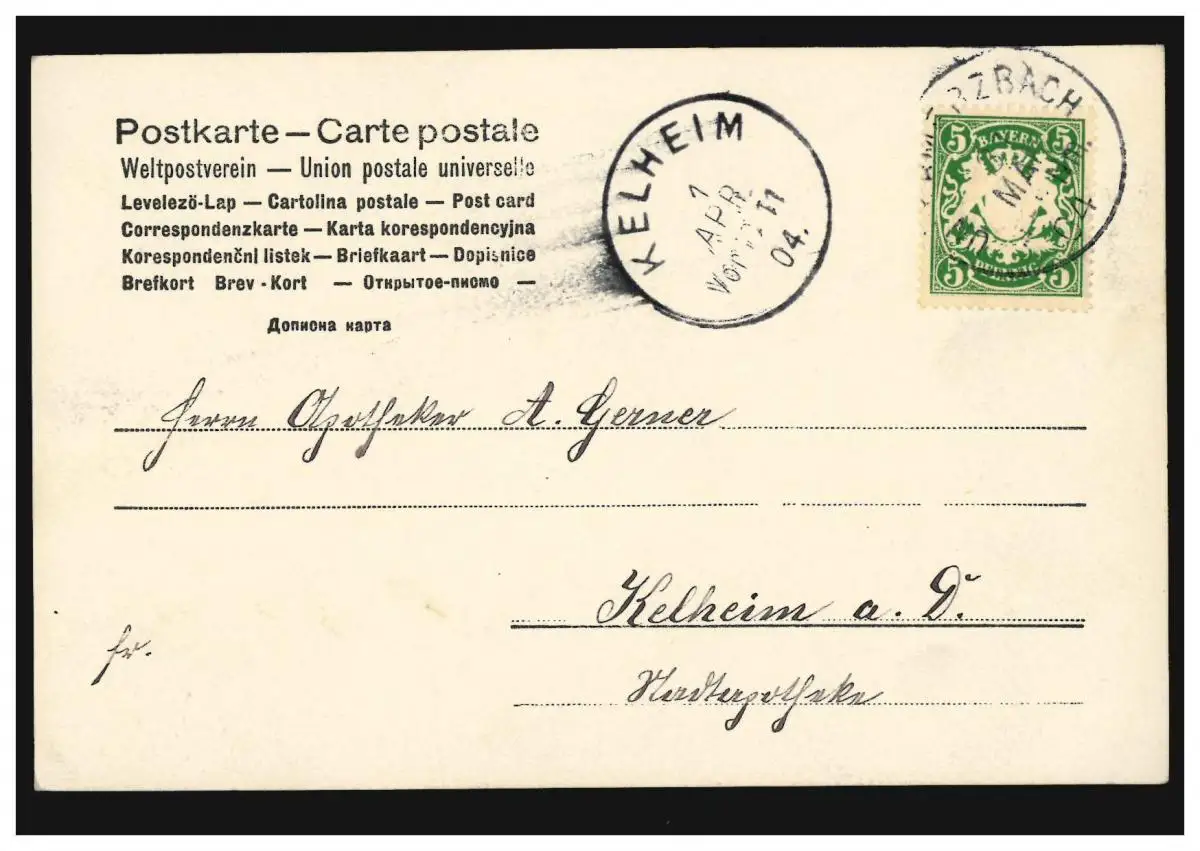 Postkarte — Carte postale
Weltpostverein — Union postale universelle
Levelező-Lap — Cartolina postale — Post card
Correspondenzkarte — Karta korespondencyjna
Korespondenční listek — Briefkaart — Dopisnice
Brefkort Brev-Kort — Открытое-писмо —
Дописна карта
KELHEIM
1
APR.
11
04.
RZBACH
MRZ
04
5 BAYERN 5
5 PFENNIG 5
Herrn Apotheker A. Gerner
Kelheim a. D.
fr.
Stadtapotheke